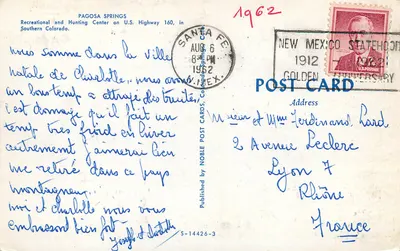 PAGOSA SPRINGS
Recreational and Hunting Center on U.S. Highway 160, in
Southern Colorado.
nous somme dans la ville
natale de Charlotte, nous avons
un beau temps attrapé des truites,
c'est domage qu'il fait un
temp très froid en hiver
autrement j'aimerai bien
me retiré dans ce pays
montagneux
moi et charlotte nous vous
embrassons bien fort
Joseph et Charlotte
S-14426-3
Published by NOBLE POST CARDS,
1962
SANTA FE
AUG 6
8 PM
1962
N. MEX.
NEW MEXICO STATEHOOD
1912 1962
GOLDEN ANNIVERSARY
POST CARD
Address
Mr et Mme Ferdinand
2 Avenue Leclerc
Lyon 7
Rhône
France